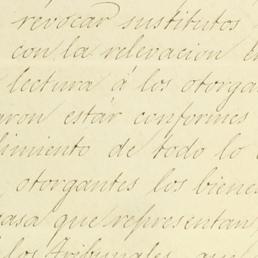 revocar sustitutos
con la relevacion en
lectura á los otorga
aron estár conformes
limiento de todo lo
otorgantes los biene
asa que representan
los Tribunales, qu